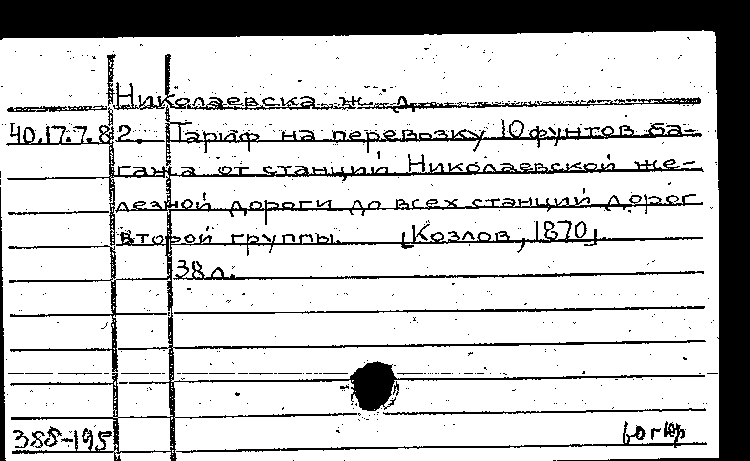 Николаевска ж. д.
40.17.7.82. Тариф на перевозку 10 фунтов ба-
гажа от станций Николаевской же-
лезной дороги до всех станций дорог
второй группы. [Козлов, 1870]
38 л.
388-195